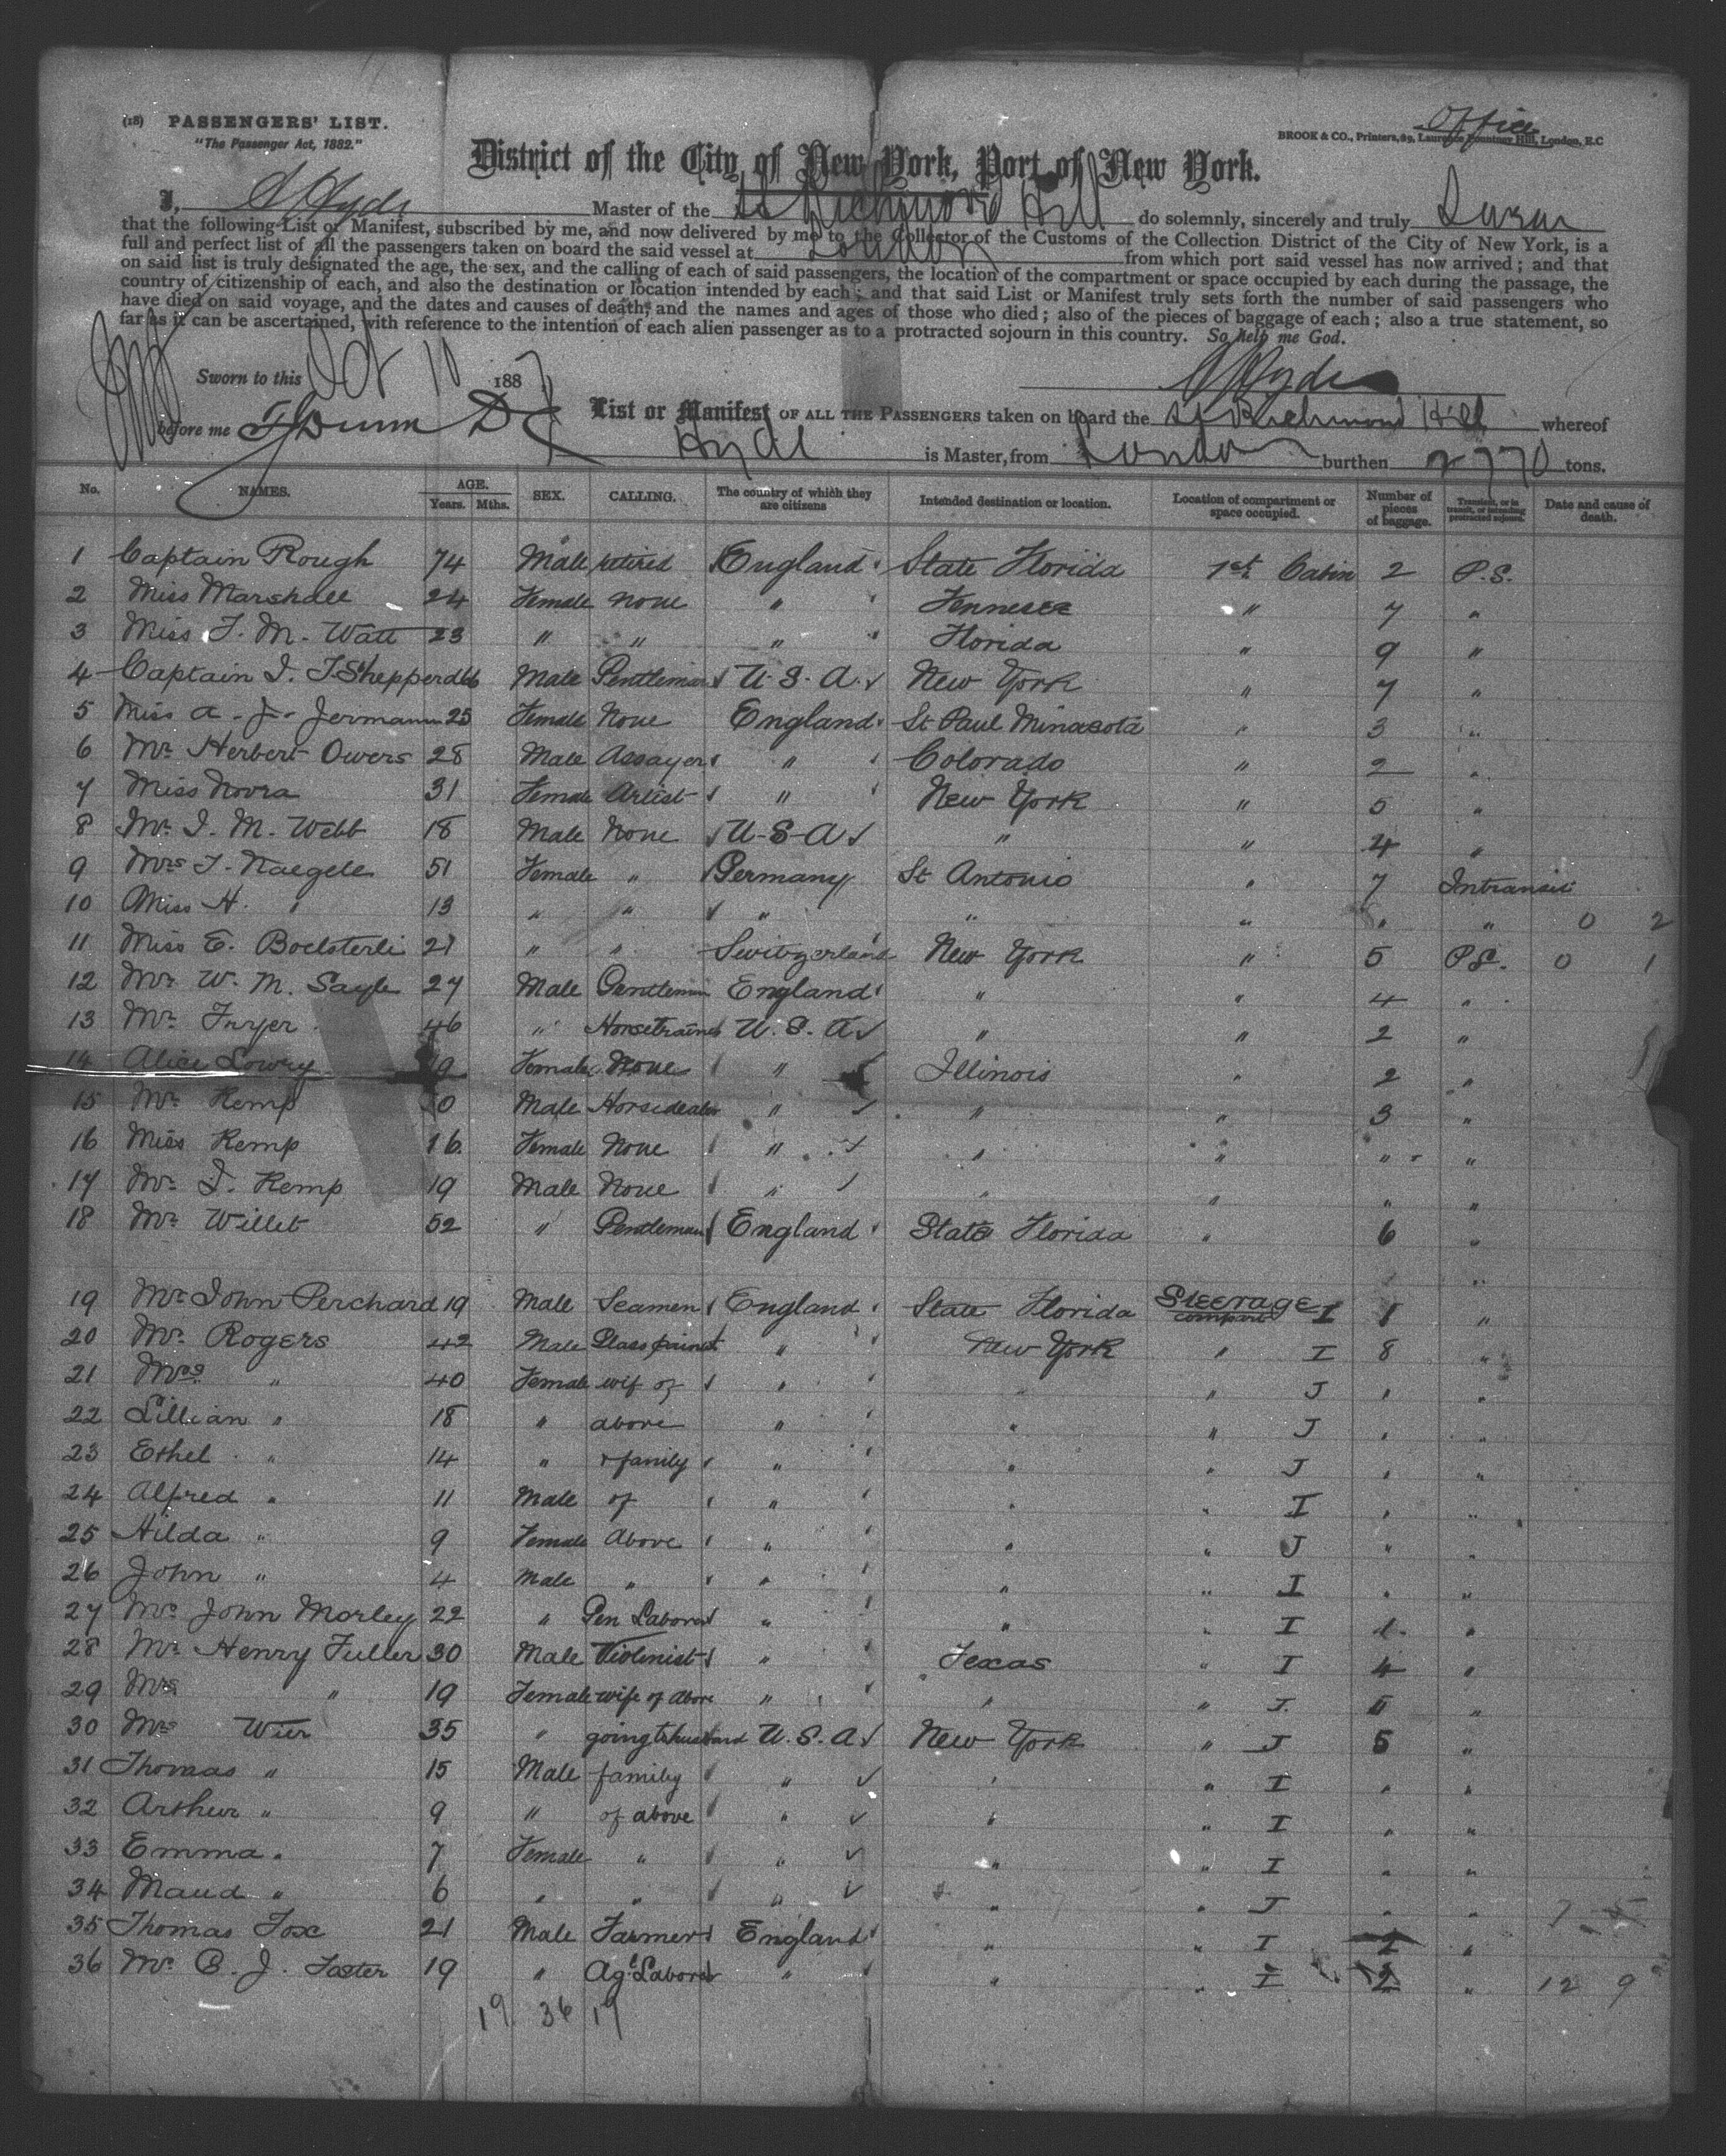 (18) PASSENGERS' LIST.
"The Passenger Act, 1882."
Office
BROOK & CO., Printers, 89, Laurence Pountney Hill, London, E.C
District of the City of New York, Port of New York.
I, S Hyde Master of the SS Richmond Hill do solemnly, sincerely and truly Swear
that the following List or Manifest, subscribed by me, and now delivered by me to the Collector of the Customs of the Collection District of the City of New York, is a
full and perfect list of all the passengers taken on board the said vessel at London from which port said vessel has now arrived; and that
on said list is truly designated the age, the sex, and the calling of each of said passengers, the location of the compartment or space occupied by each during the passage, the
country of citizenship of each, and also the destination or location intended by each; and that said List or Manifest truly sets forth the number of said passengers who
have died on said voyage, and the dates and causes of death, and the names and ages of those who died; also of the pieces of baggage of each; also a true statement, so
far as it can be ascertained, with reference to the intention of each alien passenger as to a protracted sojourn in this country. So help me God.
Sworn to this Oct 10 1887 S Hyde
before me
List or Manifest OF ALL THE PASSENGERS taken on board the SS Richmond Hill whereof
Hyde is Master, from London burthen 2770 tons.
No. NAMES. AGE. Years. Mths. SEX. CALLING. The country of which they are citizens Intended destination or location. Location of compartment or space occupied. Number of pieces of baggage. Transient, or in transit, or intending protracted sojourn. Date and cause of death.
1 Captain Rough 74 Male retired England State Florida 1st Cabin 2 P.S.
2 Miss Marshall 24 Female None " Tennesee " 7 "
3 Miss F. M. Watt 23 " " " Florida " 9 "
4 Captain I. T. Shepperd 66 Male Gentleman U.S.A. New York " 7 "
5 Miss A. J. Jermann 25 Female None England St Paul Minasota " 3 "
6 Mr Herbert Owers 28 Male Assayer " Colorado " 2 "
7 Miss Novra 31 Female Artist " New York " 5 "
8 Mr I. M. Webb 18 Male None U-S-A " " 4 "
9 Mrs T. Naegele 51 Female " Germany St Antonio " 7 Intransit
10 Miss H. " 13 " " " " " " " 0 2
11 Miss E. Boelsterli 21 " " Switzerland New York " 5 P.S. 0 1
12 Mr W. M. Sayle 27 Male Gentleman England " " 4 "
13 Mr Fryer 46 " Horsetrainer U.S.A " " 2 "
14 Alice Lowry Female None " Illinois " 2 "
15 Mr Kemp Male Horsedealer " " " 3 "
16 Miss Kemp 16 Female None " " " " "
17 Mr I. Kemp 19 Male None " " " " "
18 Mr Willet 52 " Gentleman England State Florida " 6 "
19 Mr John Perchard 19 Male Seamen England State Florida Steerage compart I 1 "
20 Mr Rogers 42 Male Glass paint " New York " I 8 "
21 Mrs " 40 Female wif of " " " J " "
22 Lillian " 18 " above " " " J " "
23 Ethel " 14 " & family " " " J " "
24 Alfred " 11 Male of " " " I " "
25 Hilda " 9 Female Above " " " J " "
26 John " 4 Male " " " " I " "
27 Mr John Morley 22 " Gen Laborer " " " I 1 "
28 Mr Henry Fuller 30 Male Violinist " Texas " I 4 "
29 Mrs " 19 Female wife of above " " " J "
30 Mrs Wier 35 " going to husband U.S.A New York " J 5 "
31 Thomas " 15 Male family " " " I " "
32 Arthur " 9 " of above " " " I " "
33 Emma " 7 Female " " " " I " "
34 Maud " 6 " " " " " J " " 7
35 Thomas Fox 21 Male Farmer England " " I 1 "
36 Mr B. J. Faster 19 " Agl Laborer " " " I 2 " 12 9
19 36 19